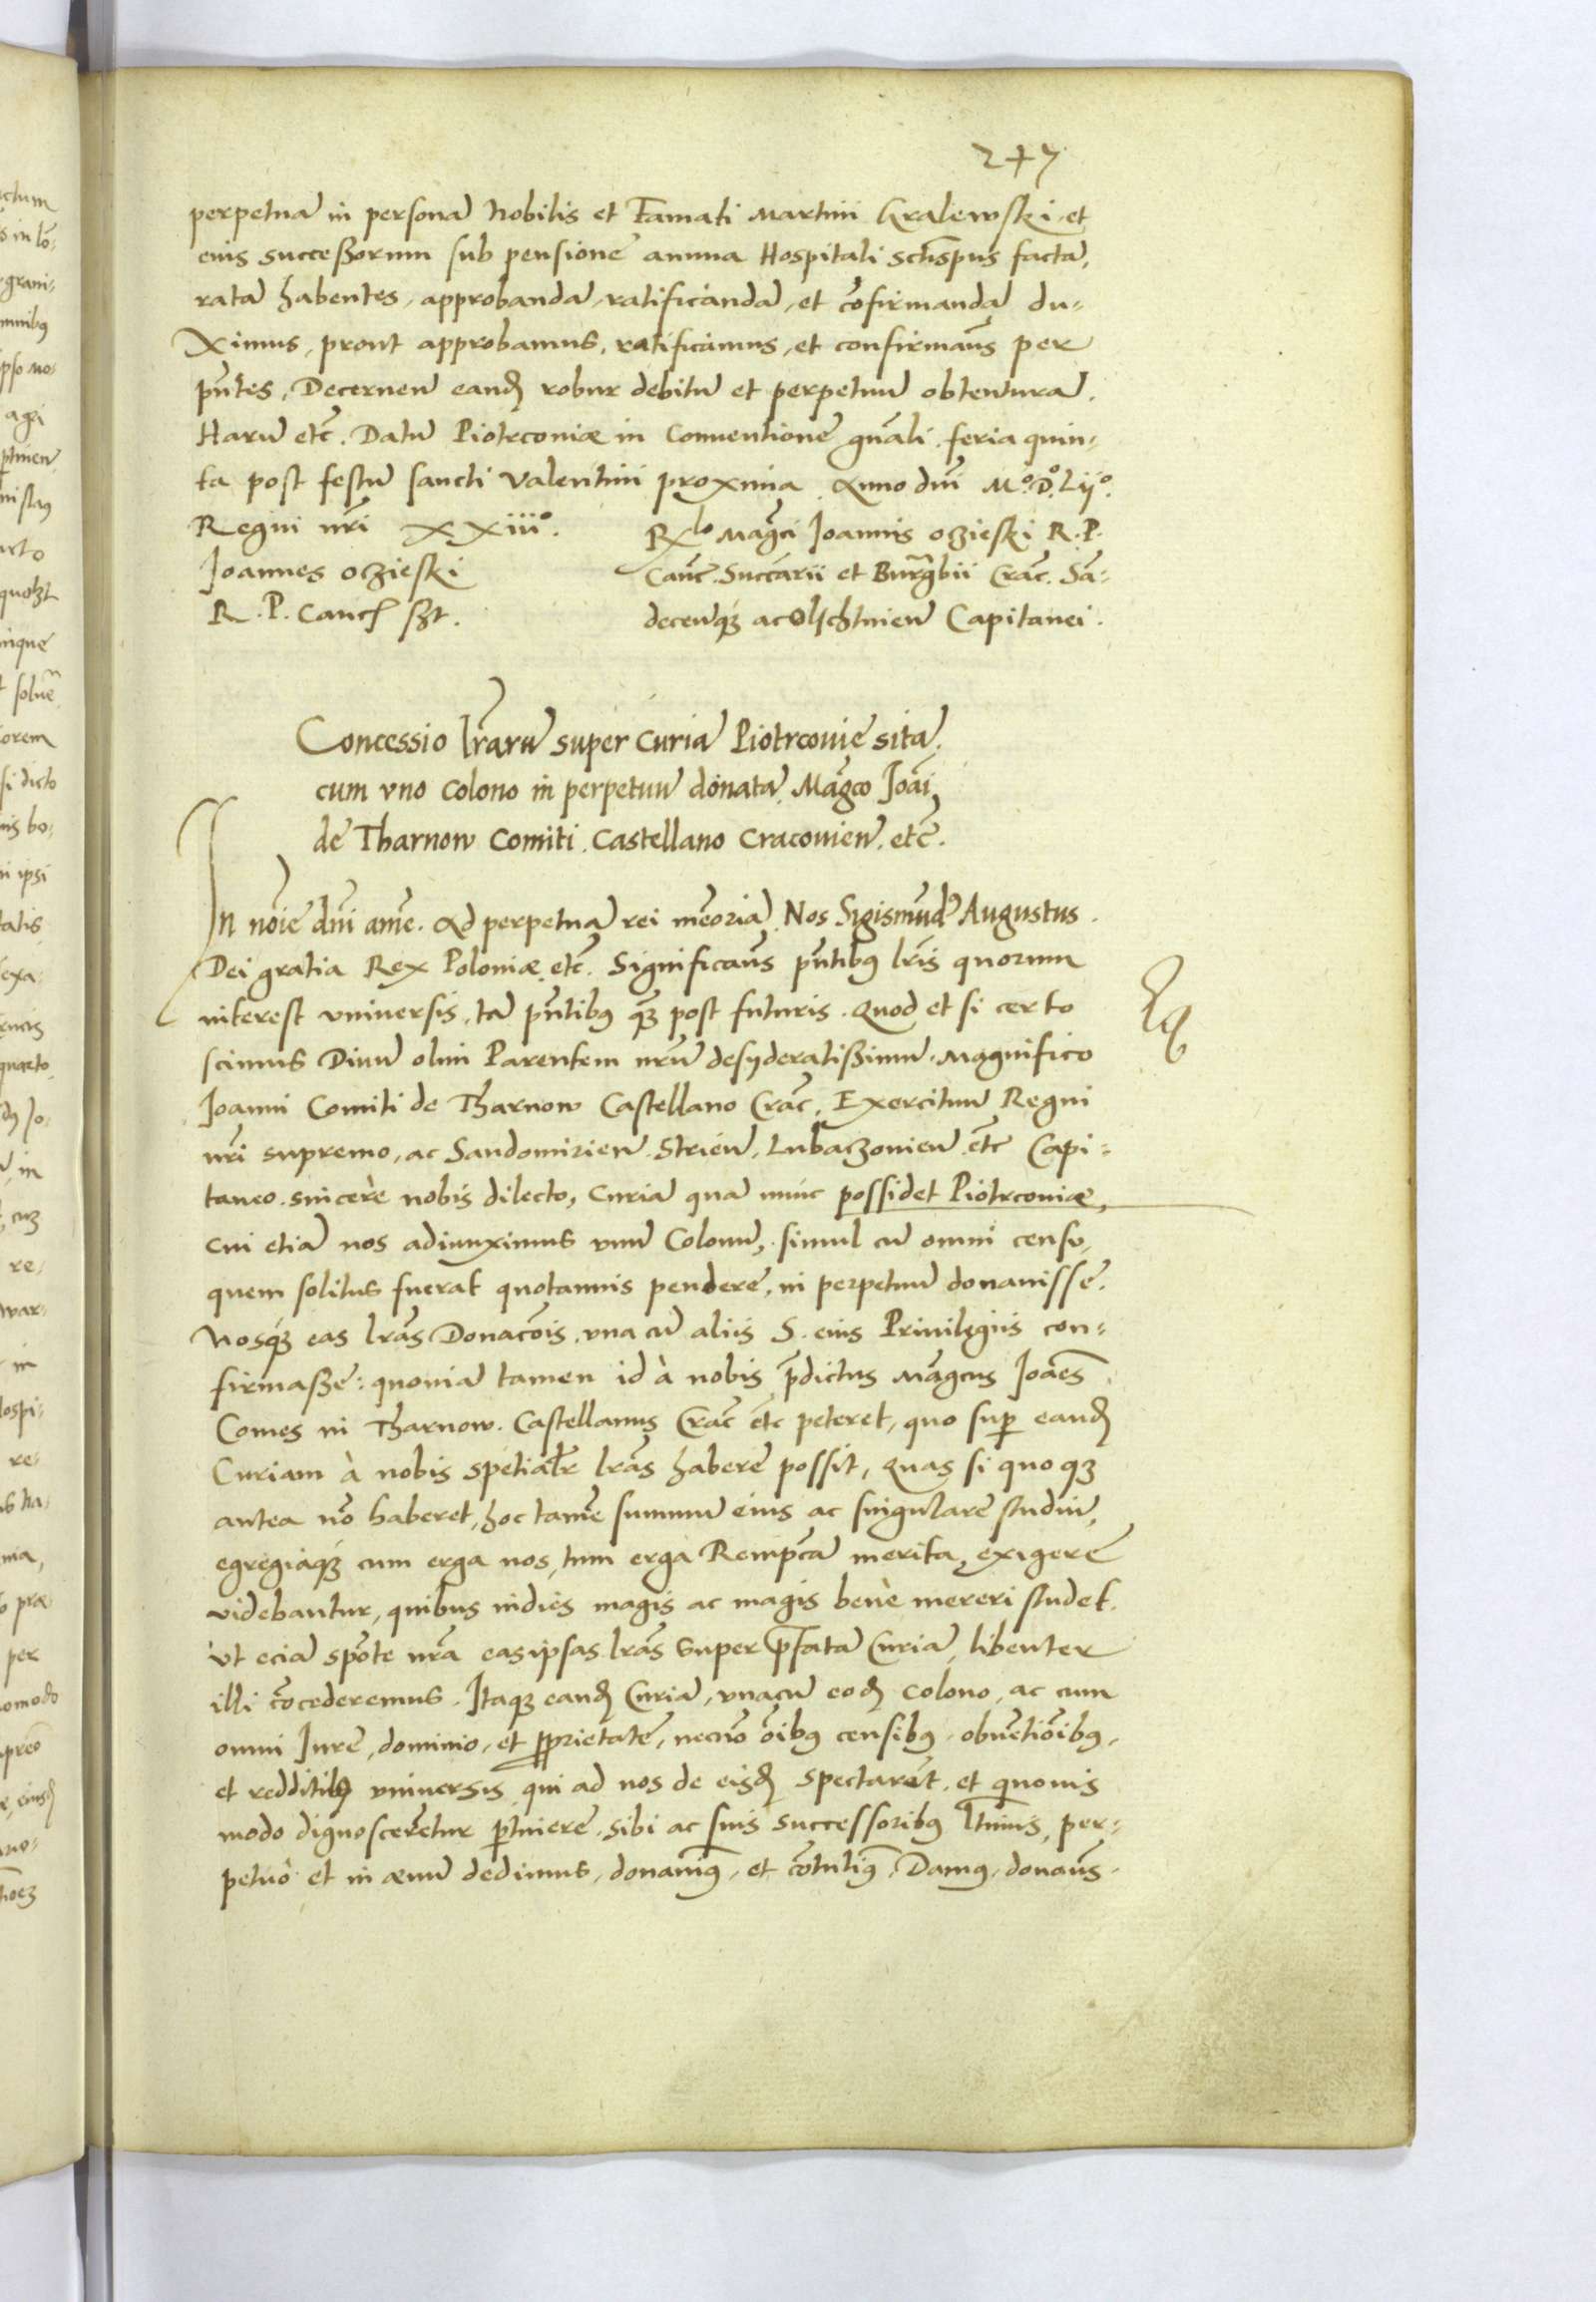 247
perpetuã in personã Nobilis et Famati Martini Kralewski et
eius successorum sub pensione annua Hospitali factã,
ratã habentes, approbandã, ratificandã, et cõfirmandã du-
ximus, prout approbamus, ratificamus, et confirmam̃s per
pñtes, Decerneñ eand robur debitũ et perpetuũ obtenturã.
Harũ etc̃. Datũ Piotrconiæ in Conuentione gñali feria quin-
ta post festũ sancti Valentini proxima Anno dñi Mº. Dº. Lijº.
Regni nr̃i XXiiiº.
Rlo Mag̃ci Joannis oczieski R. P.
Canc̃. Succarii et Burg̃bii Crac̃. Sã-
decenq́ ac Olschtinieñ Capitanei.
Joannes oczieski
R. P. Canc sst.
Concessio lr̃arũ super Curiã Piotrconie sitã
cum vno colono in perpetuũ donatã Mag̃co Joãi
de Tharnow Comiti Castellano Cracouieñ. etc̃.
In noĩe dñi amẽ. Ad perpetuã rei mẽoriã Nos Sigismũd9 Augustus
Dei gratia Rex Poloniæ etc̃. Significam̃s pñtibus lr̃is quorum
interest vniuersis, tã pñtibus q̃ȝ post futuris. Quod et si certo
scimus Diuũ olim Parentem nr̃um desyderatissimũ Magnifico
Joanni Comiti de Tharnow Castellano Crac̃, Exercituũ Regni
nr̃i supremo, ac Sandomirieñ Strieñ, Lubaczouieñ etc̃ Capi-
taneo sincerè nobis dilecto, Curiã quã nunc possidet Piotrconiæ,
cui etiã nos adiunximus vnũ Colonũ, simul cũ omni censu,
quem solitus fuerat quotannis pendere, in perpetuũ donauisse.
Nosq́ȝ eas lr̃as Donac̃ois, vna cũ aliis S. eius Priuilegiis con-
firmasse: quoniã tamen id à nobis p̃dictus Mag̃cus Joães
Comes in Tharnow. Castellanus Crac̃ etc̃ peteret, quo sup eand
Curiam à nobis spetialr̃ lr̃as habere possit, Quas si quoqȝ
antea nõ haberet, hoc tamẽ summũ eius ac singulare studiũ,
egregiaq́ȝ cum erga nos, tum erga Rempc̃ã merita, exigere
videbantur, quibus indies magis ac magis benè mereri studet.
Vt eciã spõte nr̃a easipsas lr̃as super p̃fatã Curiã, libenter
illi cõcederemus. Itaqȝ eand Curiã, vnacũ eod colono, ac cum
omni Jure, dominio, et proprietate, necnõ oĩbus censibus, obuẽtiõibus,
et redditibus vniuersis qui ad nos de eisd spectarẽt, et quouis
modo dignoscerẽtur ptinere, sibi ac suis successoribus ltĩmis, per-
petuò et in æuũ dedimus, donauim9, et cõtulim9, Dam9, donam̃s